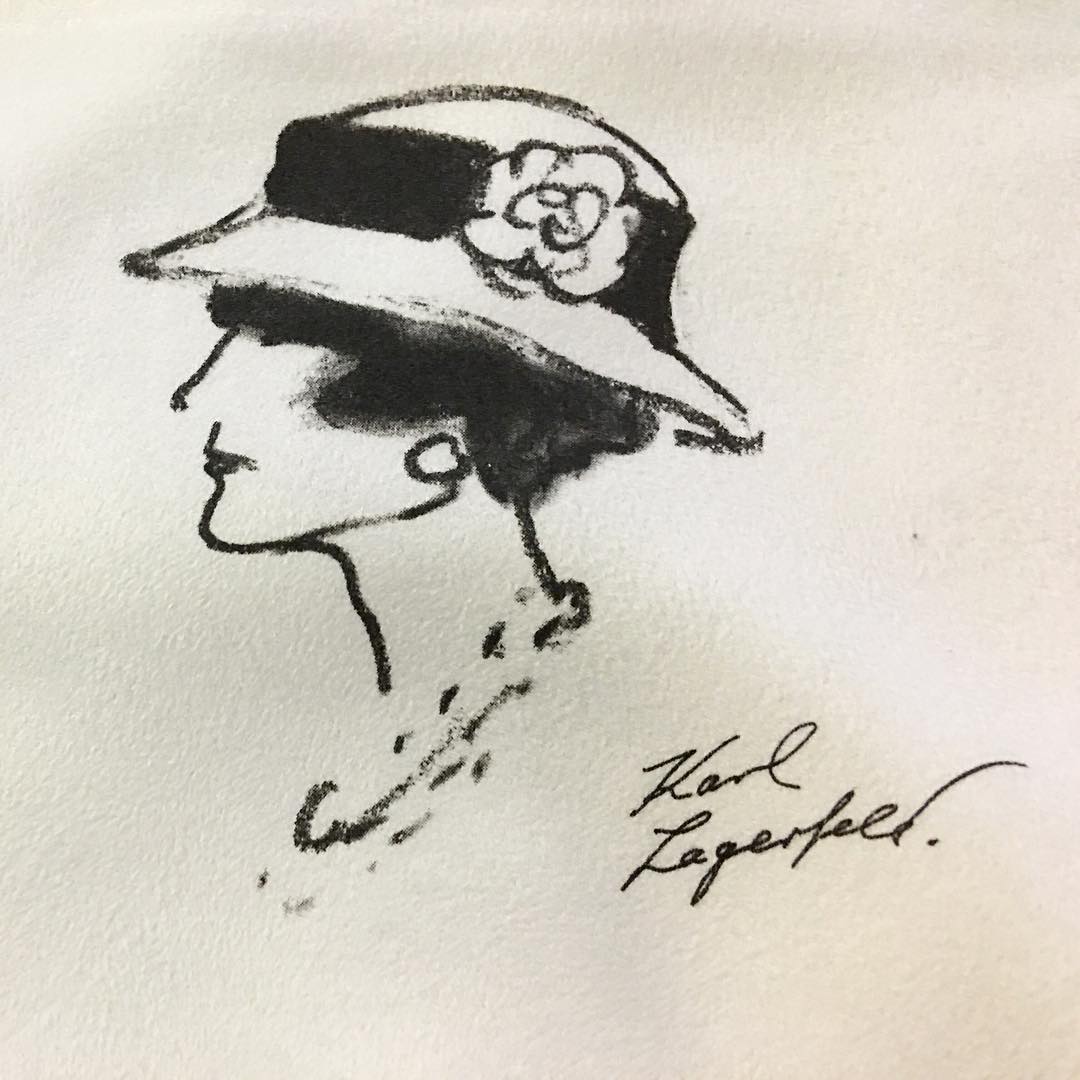 Karl
Lagerfeld.